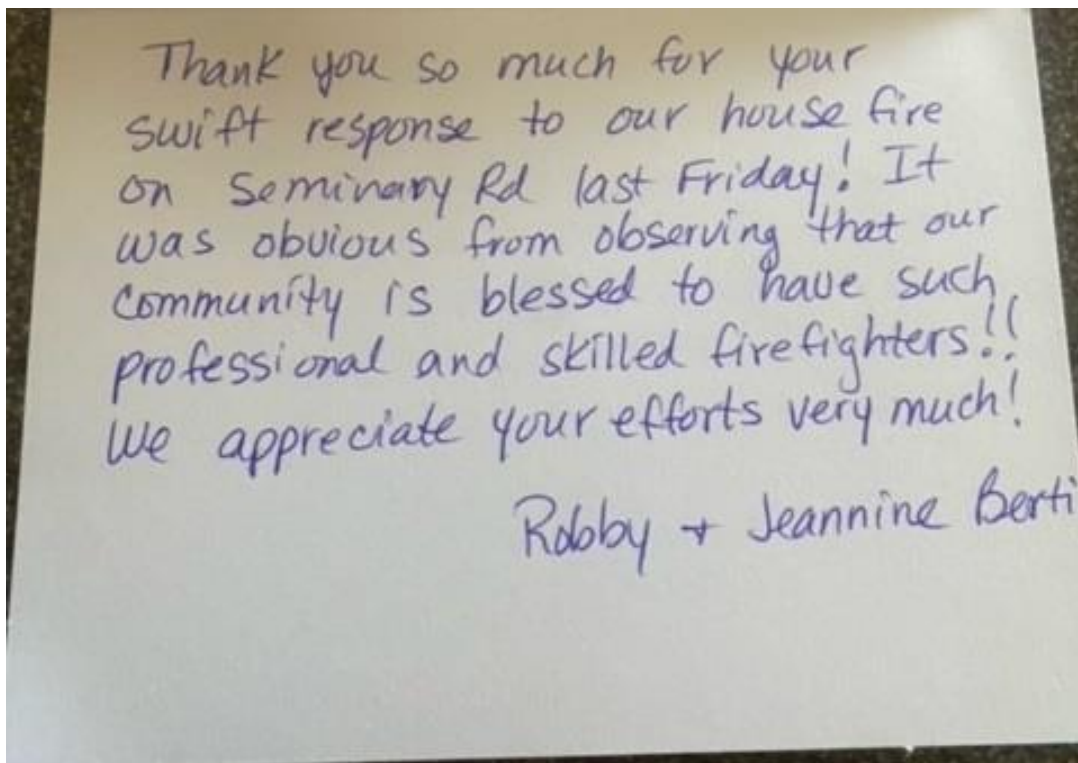 Thank you so much for your
swift response to our house fire
on Seminary Rd last Friday! It
was obvious from observing that our
community is blessed to have such
professional and skilled firefighters!!
We appreciate your efforts very much!
Robby + Jeannine Berti